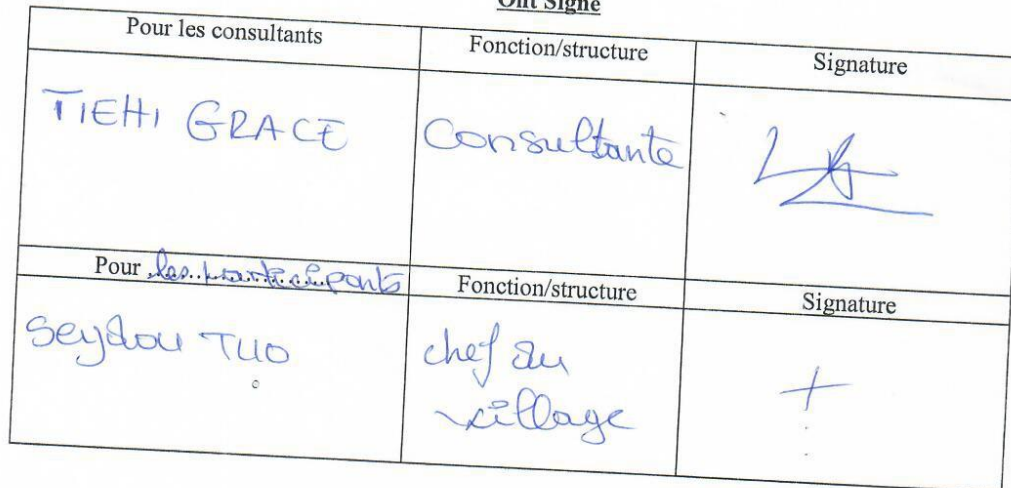 Ont Signé
Pour les consultants Fonction/structure Signature
TIEHI GRACE Consultante
Pour les participants Fonction/structure Signature
Seydou TUO chef du
village
+